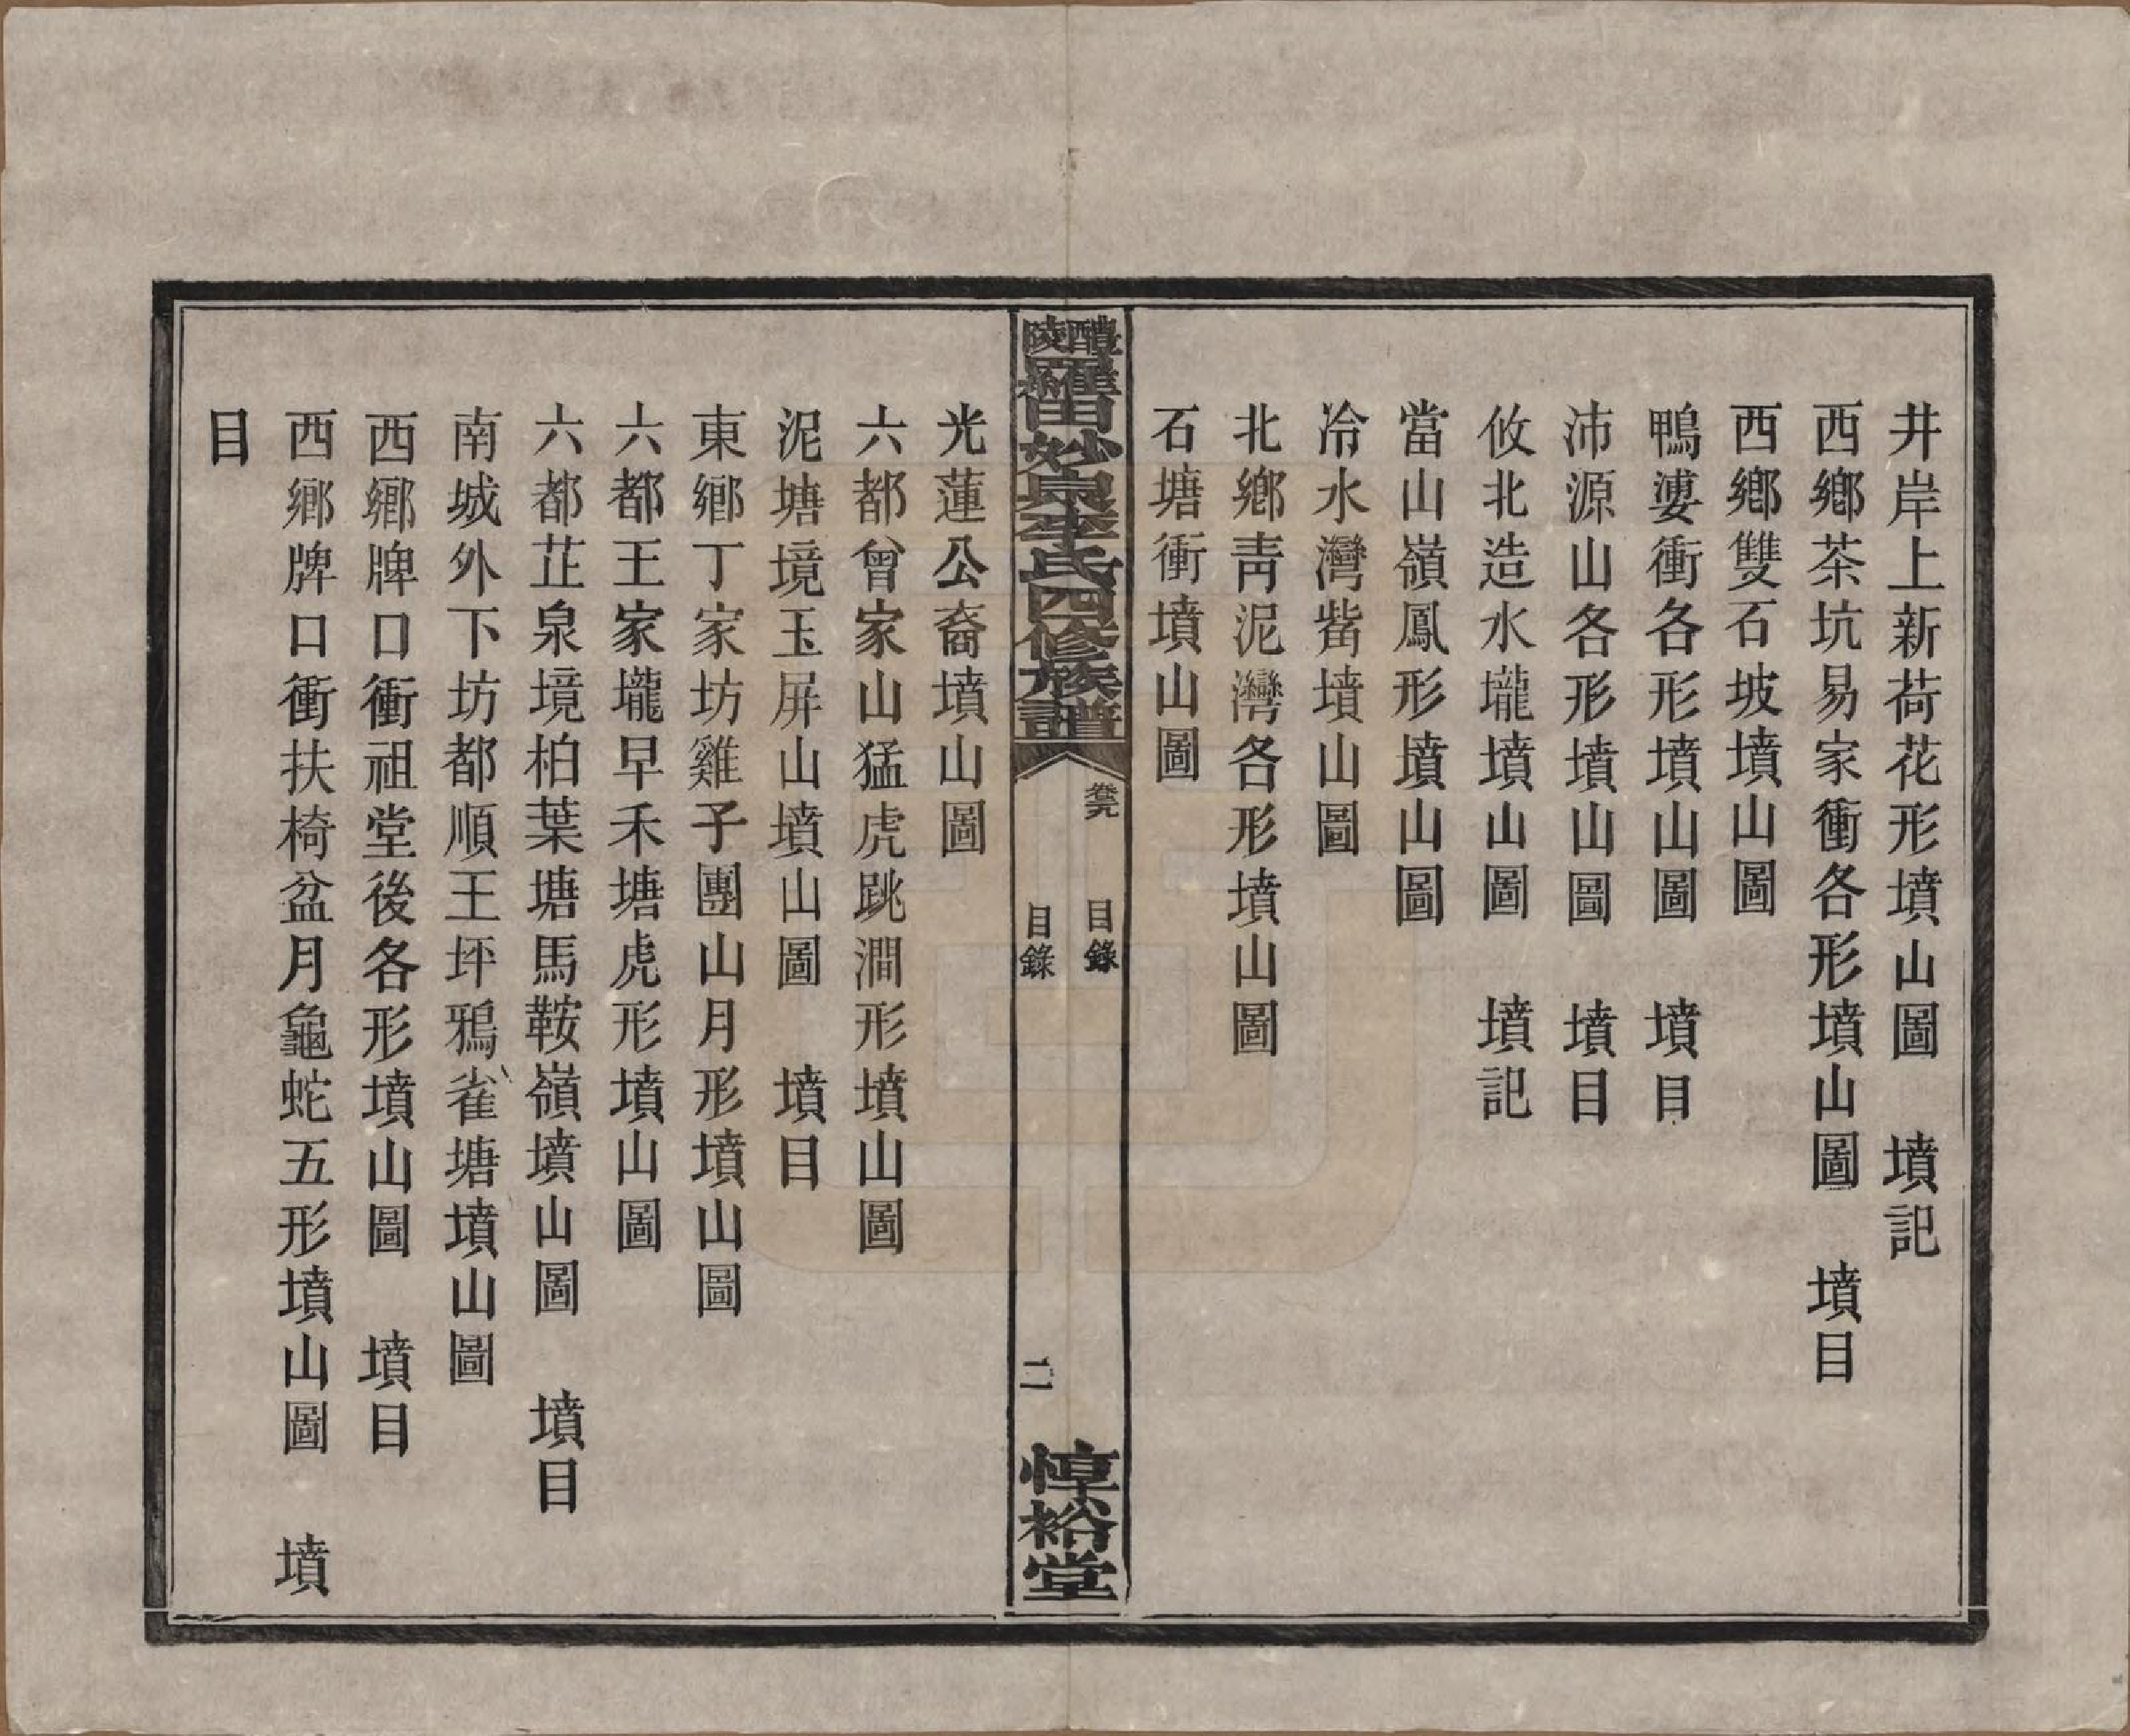 井岸上新荷花形墳山圖　墳記
西鄉茶坑易家衝各形墳山圖　墳目
西鄉雙石坡墳山圖
鴨婆衝各形墳山圖　墳目
沛源山各形墳山圖　墳目
攸北造水壠墳山圖　墳記
當山嶺鳳形墳山圖
冷水灣觜墳山圖
北鄉青泥灣各形墳山圖
石塘衝墳山圖
醴陵羅田妙泉李氏四修族譜
卷芫　目錄
目錄　二
惇裕堂
光蓮公裔墳山圖
六都曾家山猛虎跳澗形墳山圖
泥塘境玉屏山墳山圖　墳目
東鄉丁家坊雞子團山月形墳山圖
六都王家壠早禾塘虎形墳山圖
六都芷泉境柏葉塘馬鞍嶺墳山圖　墳目
南城外下坊都順王坪鴉雀塘墳山圖
西鄉牌口衝祖堂後各形墳山圖　墳目
西鄉牌口衝扶椅盆月龜蛇五形墳山圖　墳
目